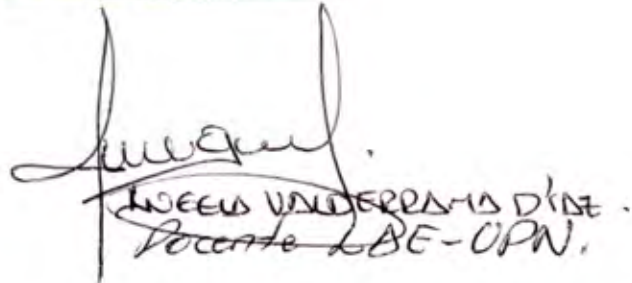 ANGELA VALDERRAMA DÍAZ.
Docente LAE-UPN.